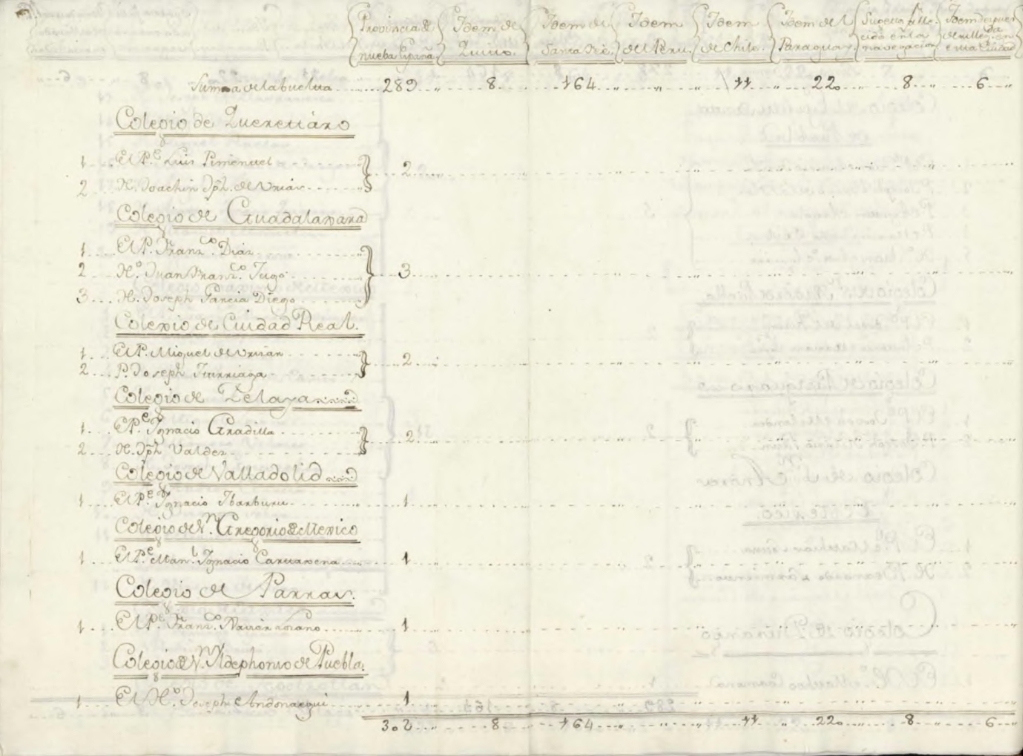 Provincia de nueba España Idem de Quito. Idem de Santa Fee. Idem del Peru. Idem de Chile. Idem del Paraguay
Suma a de la buelta 289 8 164 " 11 22 8 6
Colegio de Queretáro
1 El P.e Luis Pimentel
2 H. Joachin Jph. de Urias 2
Colegio de Guadalaxara
1 El P. Franz.co Diaz
2 H.o Juan Franz.co Tugo 3
3 H. Joseph Garcia Diego
Colexio de Cuidad Real.
1 El P. Miguel de
2 P. Joseph Iturriaga 2
Colegio de Zelaya
1 El P.e Ignacio Gradilla
2 H. Jph. Valdez 2
Colegio de Valladolid
1 El P.e Ignacio Ibarburu 1
Colegio de S.n Gregorio de Mexico
1 El P.e Man.l Ignacio Cartaxena 1
Colegio de Parras.
1 El P.e Franz.co Xavier Lozano 1
Colegio de S.n Ildephonso de Puebla.
1 El H.o Joseph Andonaegui 1
302 8 164 " 11 22 8 6